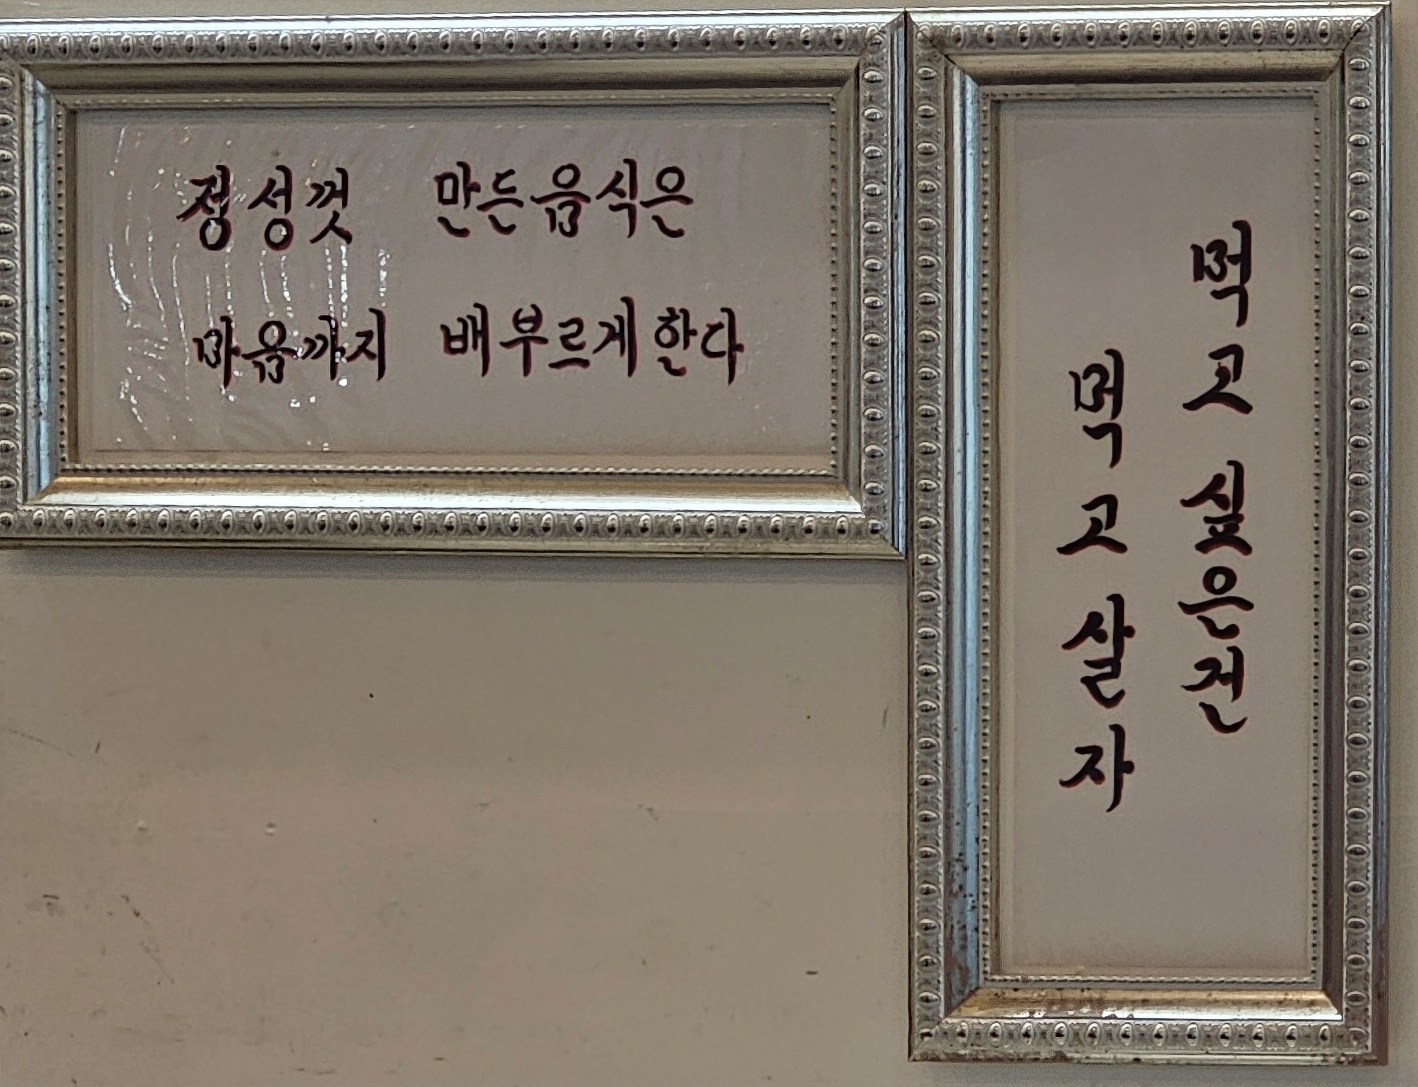 정성껏 만든음식은
마음까지 배부르게한다
먹고싶은건
먹고살자